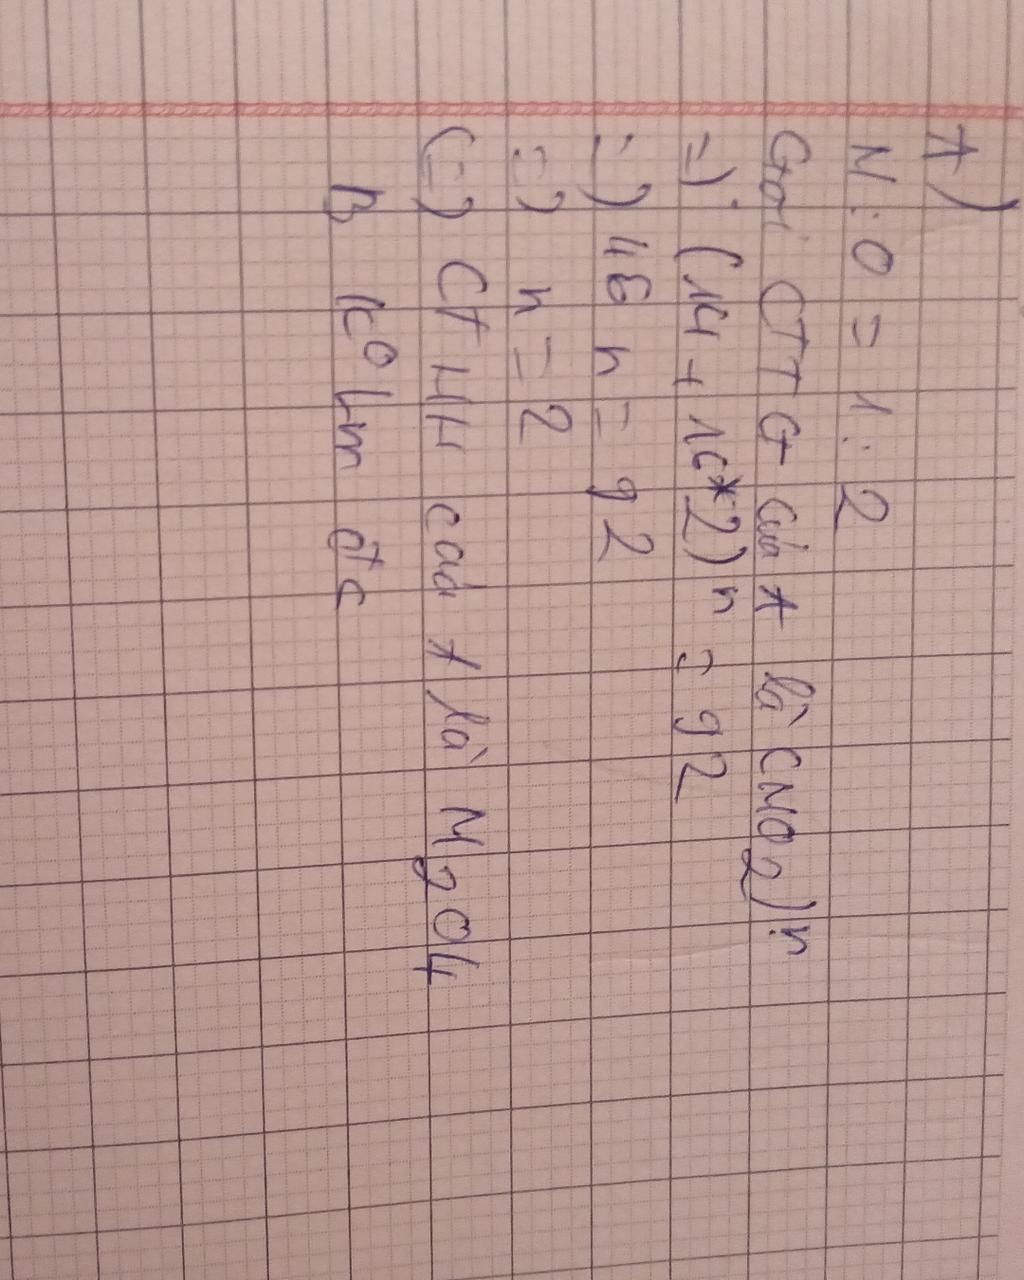 A)
N : O = 1 : 2
Gọi CTTG của A là (NO2)n
=) (14 + 16*2)n = 92
=) 46 n = 92
=) n = 2
(=) CTHH của A là N2O4
B